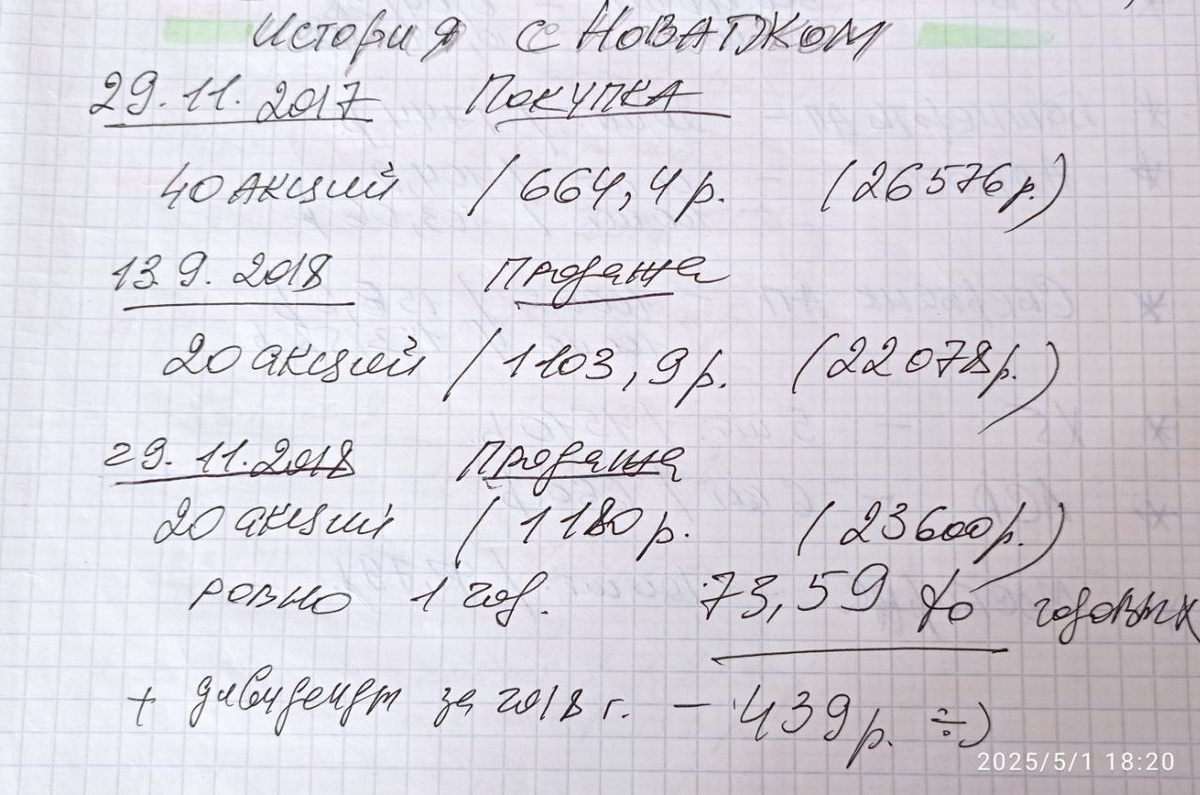 История с НОВАТЭКОМ
29.11.2017 ПОКУПКА
40 АКЦИЙ / 664,4 р. (26576 р.)
13.9.2018 Продажа
20 акций / 1103,9 р. (22078 р.)
29.11.2018 Продажа
20 акций / 1180 р. (23600 р.)
ровно 1 год. 73,59 % годовых
+ дивиденды за 2018 г. – 439 р. ÷)
2025/5/1 18:20